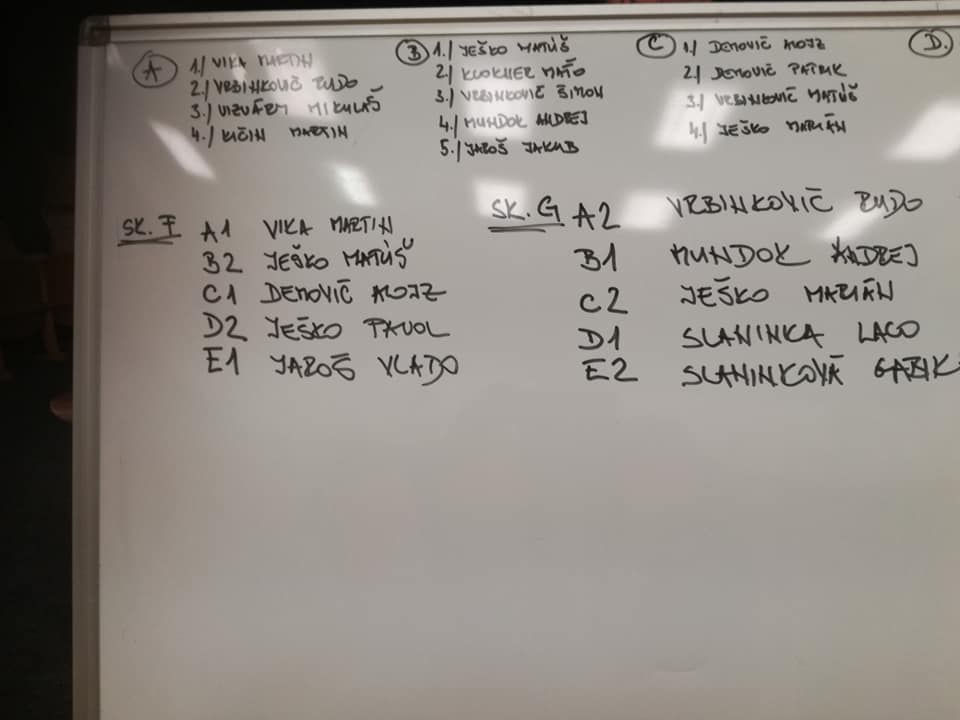 A
1./ VIKA MARTIN
2./ VRBINKOVIČ RUDO
3./ VIZVÁRY MIKULÁŠ
4./ KIČIN MARTIN
B
1./ JEŠKO MATÚŠ
2./ KLOKNER MAŤO
3./ VRBINKOVIČ ŠIMON
4./ MUNDOK ANDREJ
5./ JAROŠ JAKUB
C
1./ DEMOVIČ ALOJZ
2./ DEMOVIČ PATRIK
3./ VRBINKOVIČ MATÚŠ
4./ JEŠKO MARIÁN
D.
SK. F
A1 VIKA MARTIN
B2 JEŠKO MATÚŠ
C1 DEMOVIČ ALOJZ
D2 JEŠKO PAVOL
E1 JAROŠ VLADO
SK. G
A2 VRBINKOVIČ RUDO
B1 MUNDOK ANDREJ
C2 JEŠKO MARIÁN
D1 SLANINKA LACO
E2 SLANINKOVÁ GABIK